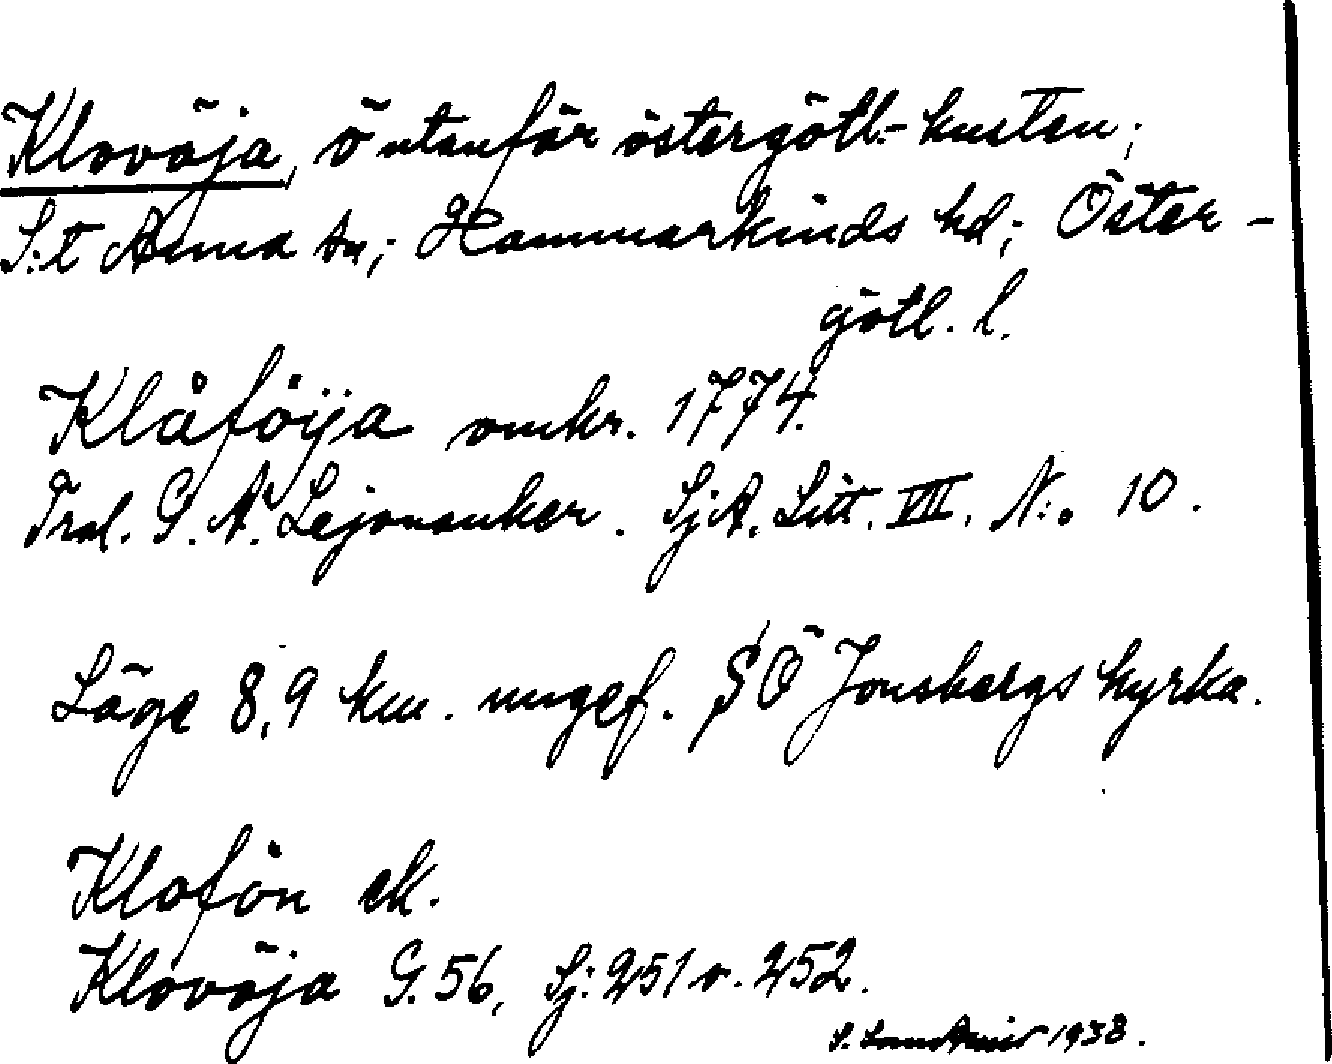 Klovöja, ö utanför östergötl.-kusten;
S:t Anna sn; Hammarkinds hd; Öster-
götl. l.
Klåföija omkr. 1774.
Trol. G. A. Lejonanker. SjA. Litt. VIII. N:o 10.
Läge 8,9 km. ungef. SÖ Jonsbergs kyrka.
Klofön ek.
Klovöja G. 56, Sj: 251 o. 252.
1938.